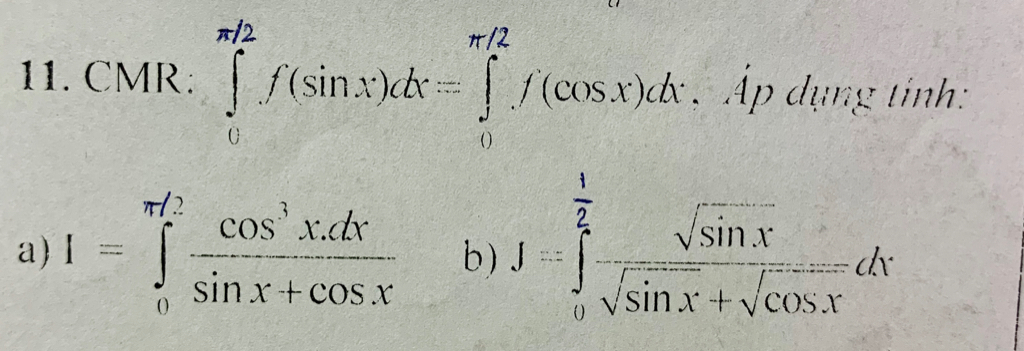 11. CMR: ∫₀^{π/2} f(sin x)dx = ∫₀^{π/2} f(cos x)dx. Áp dụng tính:
a) I = ∫₀^{π/2} \frac{cos³ x.dx}{sin x + cos x} b) J = ∫₀^{\frac{1}{2}} \frac{√sin x}{√sin x + √cos x} dx